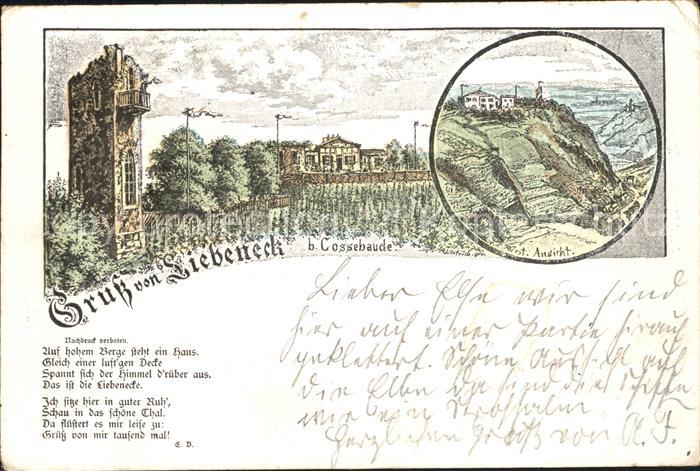 Gruß von Liebeneck b. Cossebaude.
öst. Ansicht.
Nachdruck verboten.
Auf hohem Berge steht ein Haus.
Gleich einer luft'gen Decke
Spannt sich der Himmel d'rüber aus.
Das ist die Liebenecke.
Ich sitze hier in guter Ruh',
Schau in das schöne Thal.
Da flüstert es mir leise zu:
Grüß von mir tausend mal!
E. D.
Lieber Else wir sind
hier auf einer Partie hirauf
geklettert. Schöne Aussicht auf
die Elbe da sind die Schiffe
wie ein Strohhalm
Herzlichen Gruß von A. F.